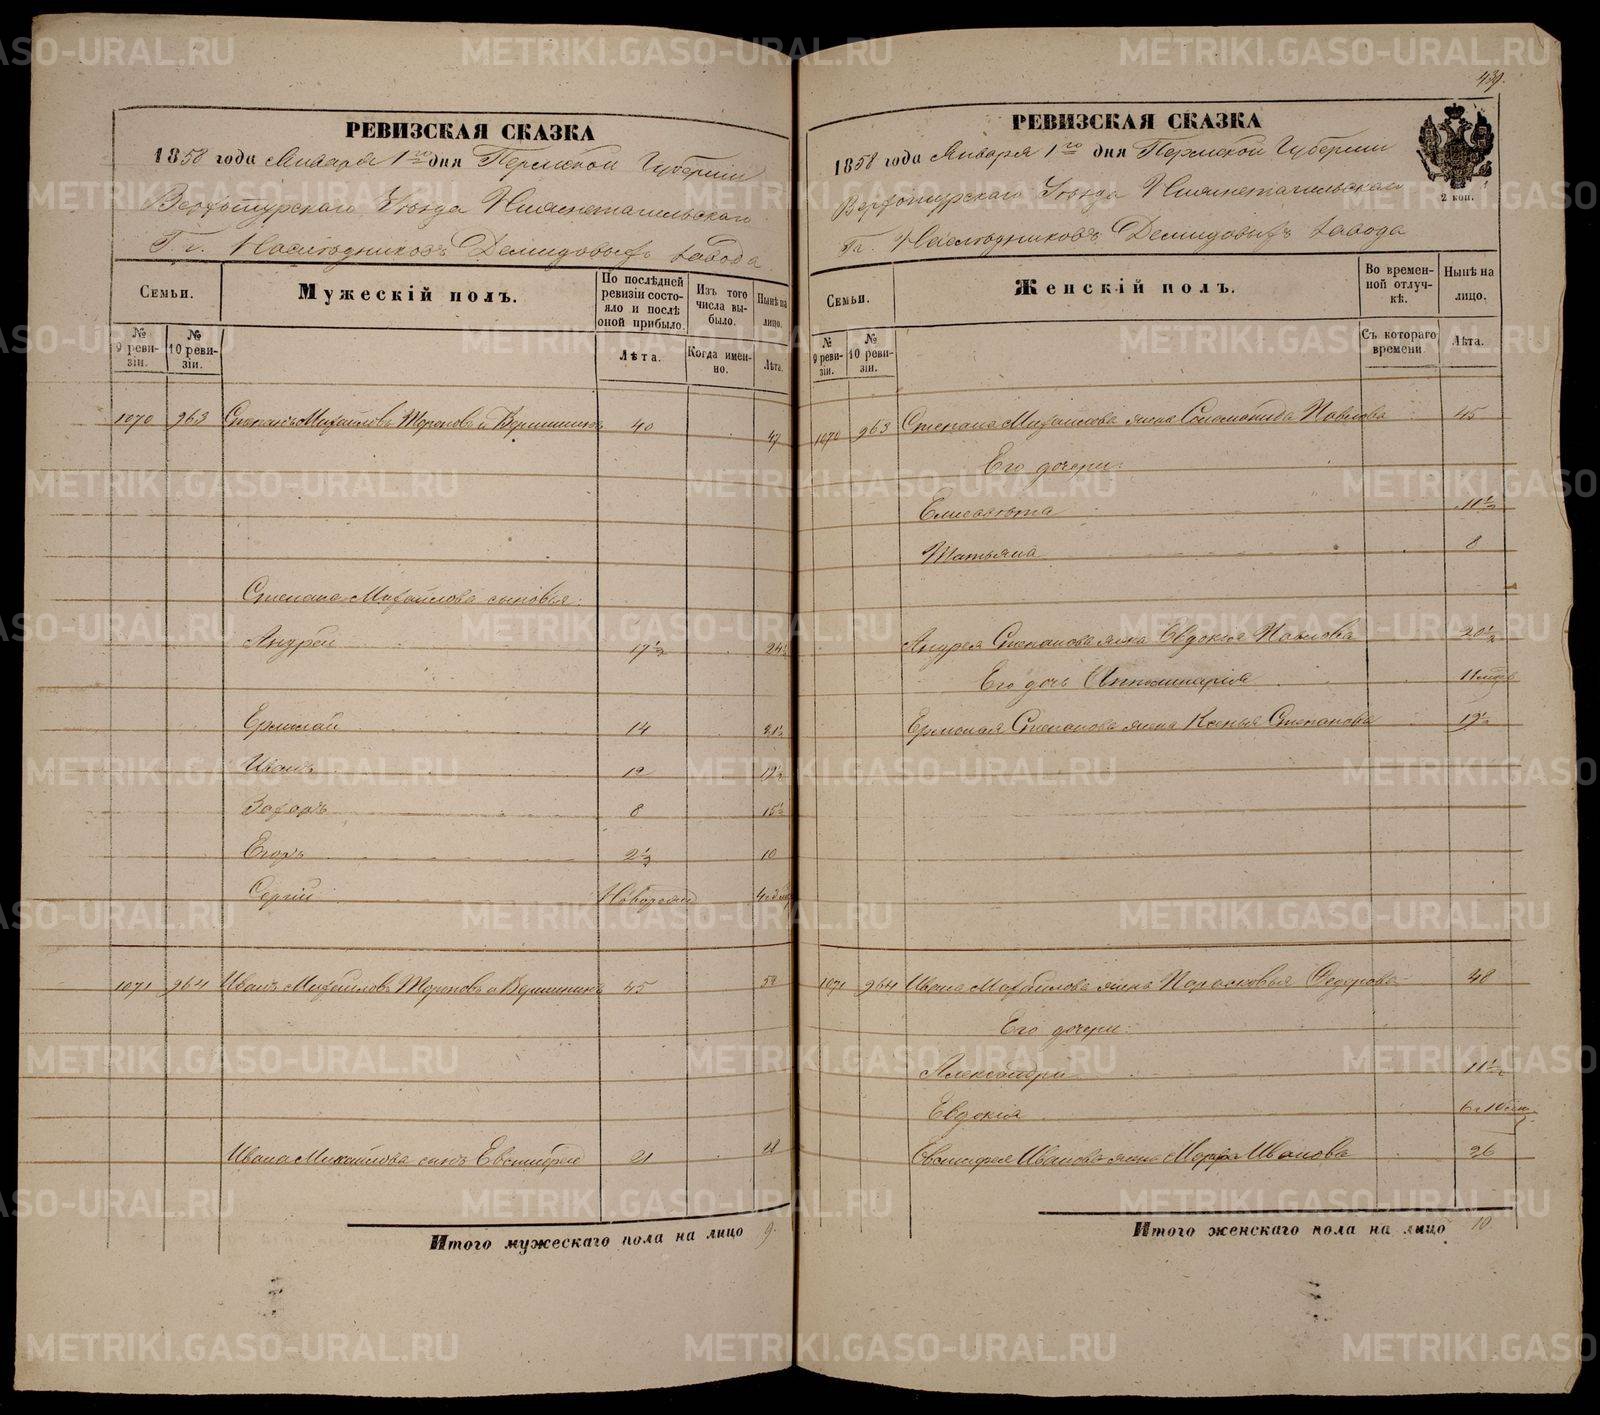 439.
РЕВИЗСКАЯ СКАЗКА
1858 года Января 1го дня Пермской Губернии
Верхотурскаго Уезда Нижнетагильскаго
Гг. Наследниковъ Демидовыхъ завода
Семьи.
Мужескій полъ.
По послѣдней ревизіи состояло и послѣ оной прибыло.
Изъ того числа выбыло.
Нынѣ на лицо.
№ 9 ревизіи.
№ 10 ревизіи.
Лѣта.
Когда именно.
Лѣта.
1070 963 Степанъ Михайловъ Тороповъ и Вершининъ 40 47
Степана Михайлова сыновья:
Андрей 17½ 24½
Ермолай 14 21½
Иванъ 12 19½
Захаръ 8 15½
Егоръ 2½ 10
Сергій Новорожд
1071 964 Иванъ Михайловъ Тороповъ и Вершининъ 45
Ивана Михайлова сынъ Евстифей 21 28
Итого мужескаго пола на лицо 9.
РЕВИЗСКАЯ СКАЗКА
1858 года Января 1го дня Пермской Губернии
Верхотурскаго Уезда Нижнетагильскаго
Гг. Наследниковъ Демидовыхъ завода
2 коп.
Семьи.
Женскій полъ.
Во временной отлучкѣ.
Нынѣ на лицо.
№ 9 ревизіи.
№ 10 ревизіи.
Съ котораго времени.
Лѣта.
1070 963 Степана Михайлова жена Соломонида Павлова 45
Его дочери:
Елисавета 11½
Татьяна 8
Андрея Степанова жена Евдокія Павлова 20½
Его дочь Апполинарія
Ермолая Степанова жена Ксенья Степанова 19½
1071 964 Ивана Михайлова жена Парасковья Федорова 48
Его дочери:
Александра 11½
Евдокія
Евстифея Иванова жена Марфа Иванова 26
Итого женскаго пола на лицо 10
METRIKI.GASO-URAL.RU